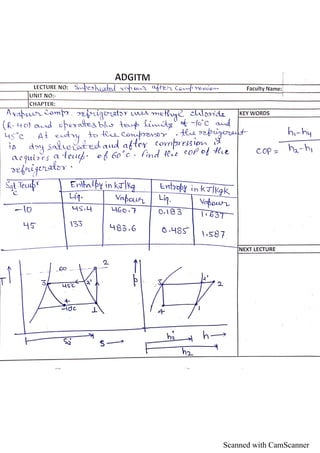 ADGITM
LECTURE NO: Superheated vapour after Compression Faculty Name:
UNIT NO:-
CHAPTER:
A vapour Compr. refrigerator uses methyl chloride
(R-40) and operates b/w temp limits of -10°C and
45°C. At entry to the Compressor, the refrigerent
is dry saturated and after compression it
acquires a temp. of 60°C. find the COP of the
refrigerator.
KEY WORDS
COP = h1-h4
h2-h1
Sat Temp° Enthalpy in kJ/kg Entropy in KJ/kgK
C Liq. Vapour Liq. Vapour
-10 45.4 460.7 0.183 1.637
45 133 483.6 0.485 1.587
NEXT LECTURE
T 60 2
3 45°C 2'
-10°C 1
4
S2' S
P 3 2' 2
4 1
h2' h
h2
Scanned with CamScanner